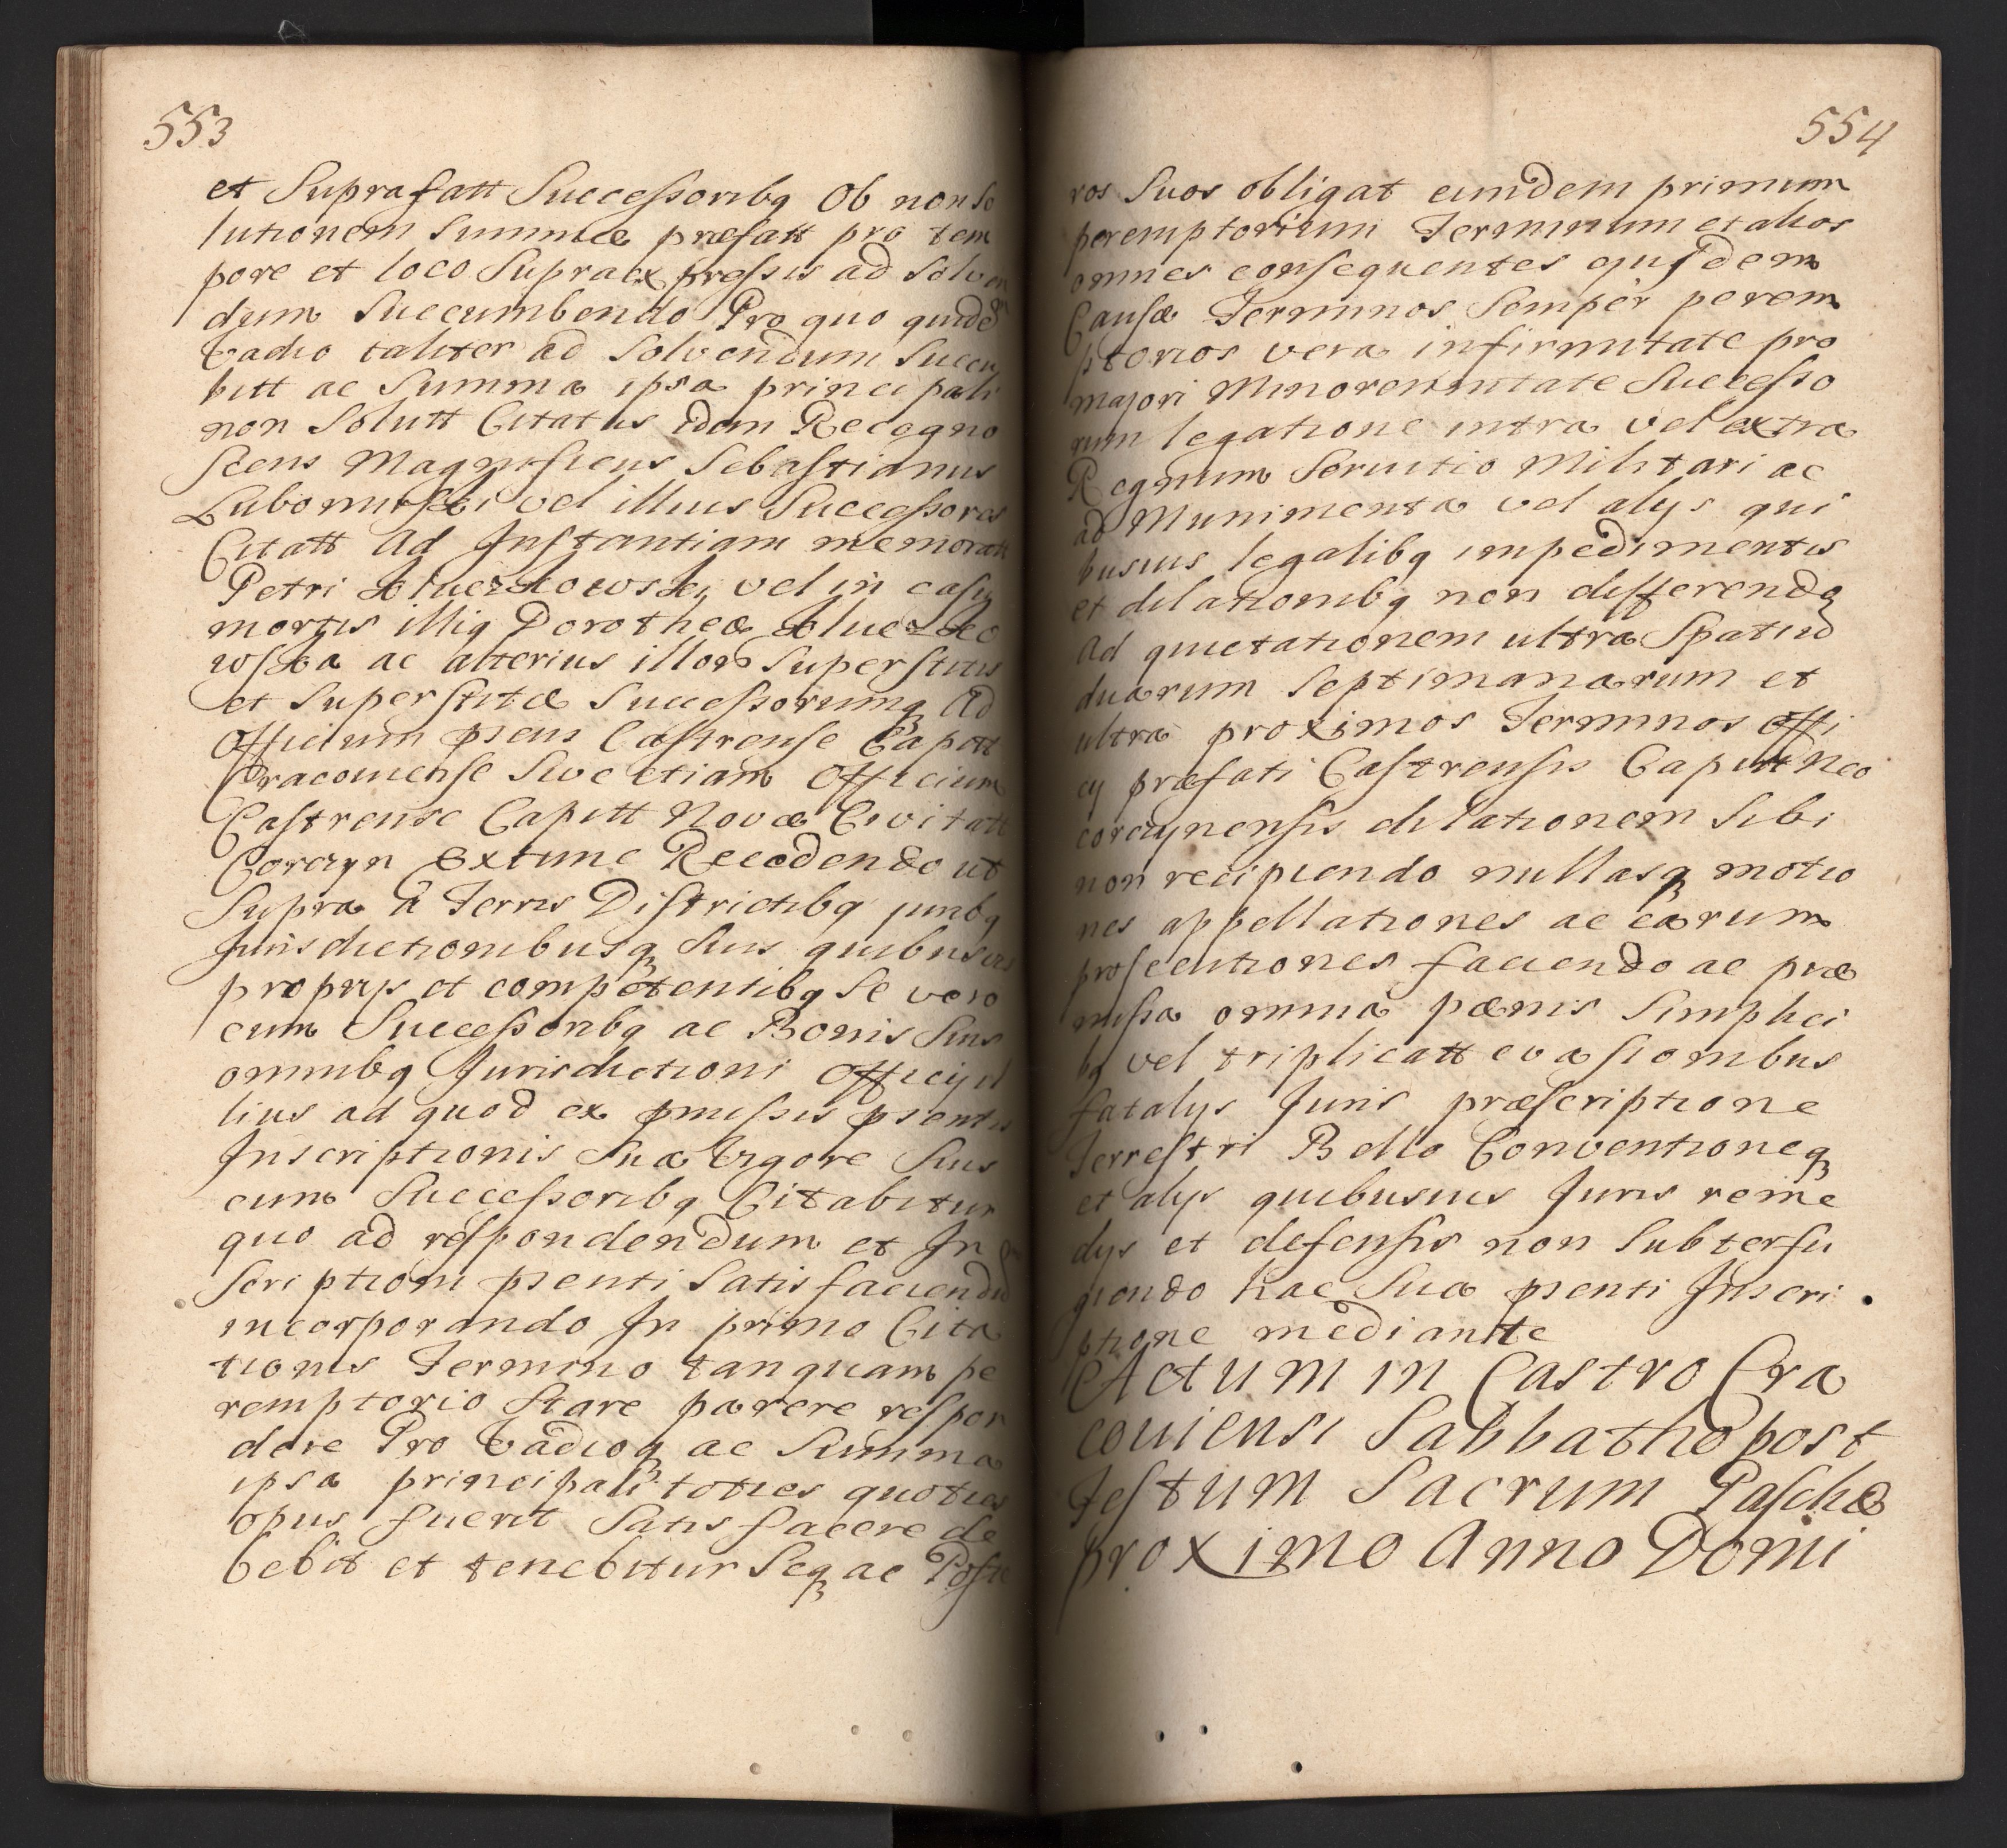 553
et Suprafatt Successoribq Ob non So
lutionem Summæ præfatt pro tem
pore et loco Supraexpressis ad Solven
dum Succumbendo Pro quo quidē
Vadio taliter ad Solvendum Succu
bitt ac Summa ipsa principali
non Solutt Citatus idem Recogno
scens Magnificus Sebastianus
Lubomirski vel illius Successores
Citatt Ad Instantiam memoratt
Petri vel in casu
mortis illiq Dorotheæ
wska ac alterius illorū Superstitis
et Superstitæ Successorumq Ad
Officium psens Castrense Capitt
Cracouiense Siue etiam Officium
Castrense Capitt Novæ Civitatt
Corczyn Extunc Recedendo ut
Supra â Terris Districtibq juribq
Jurisdictionibusq Suis quibusuis
proprijs et competentibq Se vero
cum Successoribq ac Bonis Suis
omnibq Jurisdictioni Officij il
lius ad quod ex pmissis psentis
Inscriptionis Suæ Vigore Suis
cum Successoribq Citabitur
quo ad respondendum et In
Scriptioni psenti Satisfaciendū
incorporando In primo Cita
tionis Termino tanquam pe
remptorio Stare parere respon
dere Pro Vadioq ac Summa
ipsa principali toties quoties
opus fuerit Satisfacere de
bebit et tenebitur Seq ac Poste
554
ros Suos obligat eundem primum
peremptorium Terminum et alios
omnes consequentes ejusdem
Causæ Terminos Semper perem
ptorios vera infirmitate pro
majori Minorennitate Successo
rum legatione intra vel extra
Regnum Seruitio Militari ac
ad Munimenta vel alijs qui
busuis legalibq impedimentis
et dilationibq non differendo
Ad quietationem ultra Spatiū
duarum Septimanarum et
ultra proximos Terminos Offi
cij præfati Castrensis Capitt Neo
corczynensis dilationem Sibi
non recipiendo nullasq motio
nes appellationes ac earum
prosecutiones faciendo ac præ
missa omnia pœnis Simplici
bq vel triplicatt euasionibus
fatalijs Juris præscriptione
Terrestri Bello Conventioneq
et alijs quibusuis Juris reme
dijs et defensis non Subterfu
giendo hac Sua psenti Inscri
ptione mediante
Actum in Castro Cra
couiensi Sabbatho post
Festum Sacrum Paschæ
proximo Anno Domi